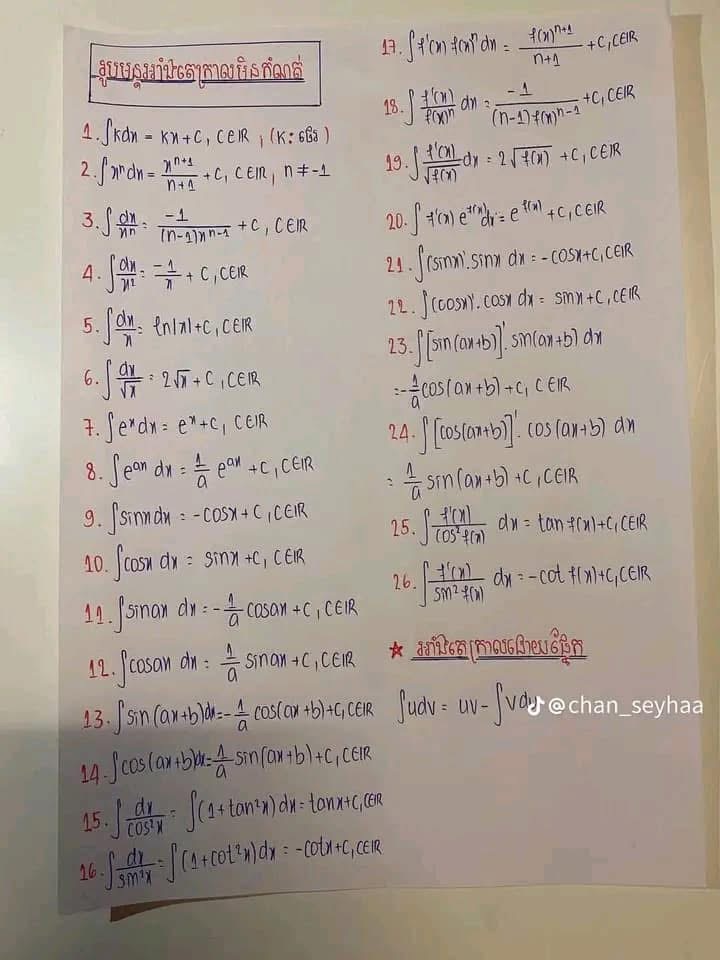 រូបមន្តអាំងតេក្រាលមិនកំណត់
1. ∫kdx = kx + c, c∈IR, (k: ថេរ)
2. ∫xⁿdx = xⁿ⁺¹/n+1 + c, c∈IR, n ≠ -1
3. ∫dx/xⁿ = -1/(n-1)xⁿ⁻¹ + c, c∈IR
4. ∫dx/x² = -1/x + c, c∈IR
5. ∫dx/x = ln|x| + c, c∈IR
6. ∫dx/√x = 2√x + c, c∈IR
7. ∫eˣdx = eˣ + c, c∈IR
8. ∫eᵃˣ dx = 1/a eᵃˣ + c, c∈IR
9. ∫sinxdx = -cosx + c, c∈IR
10. ∫cosx dx = sinx + c, c∈IR
11. ∫sinax dx = -1/a cosax + c, c∈IR
12. ∫cosax dx = 1/a sinax + c, c∈IR
13. ∫sin(ax+b)dx = -1/a cos(ax+b) + c, c∈IR
14. ∫cos(ax+b)dx = 1/a sin(ax+b) + c, c∈IR
15. ∫dx/cos²x = ∫(1+tan²x)dx = tanx + c, c∈IR
16. ∫dx/sin²x = ∫(1+cot²x)dx = -cotx + c, c∈IR
17. ∫f'(x) f(x)ⁿdx = f(x)ⁿ⁺¹/n+1 + c, c∈IR
18. ∫f'(x)/f(x)ⁿ dx = -1/(n-1)f(x)ⁿ⁻¹ + c, c∈IR
19. ∫f'(x)/√f(x) dx = 2√f(x) + c, c∈IR
20. ∫f'(x) e^f(x)dx = e^f(x) + c, c∈IR
21. ∫(sinx)'.sinx dx = -cosx + c, c∈IR
22. ∫(cosx)'.cosx dx = sinx + c, c∈IR
23. ∫[sin(ax+b)]'.sin(ax+b) dx
= -1/a cos(ax+b) + c, c∈IR
24. ∫[cos(ax+b)]'.cos(ax+b) dx
= 1/a sin(ax+b) + c, c∈IR
25. ∫f'(x)/cos²f(x) dx = tan f(x) + c, c∈IR
26. ∫f'(x)/sin²f(x) dx = -cot f(x) + c, c∈IR
★ អាំងតេក្រាលដោយផ្នែក
∫udv = uv - ∫vdu
@chan_seyhaa